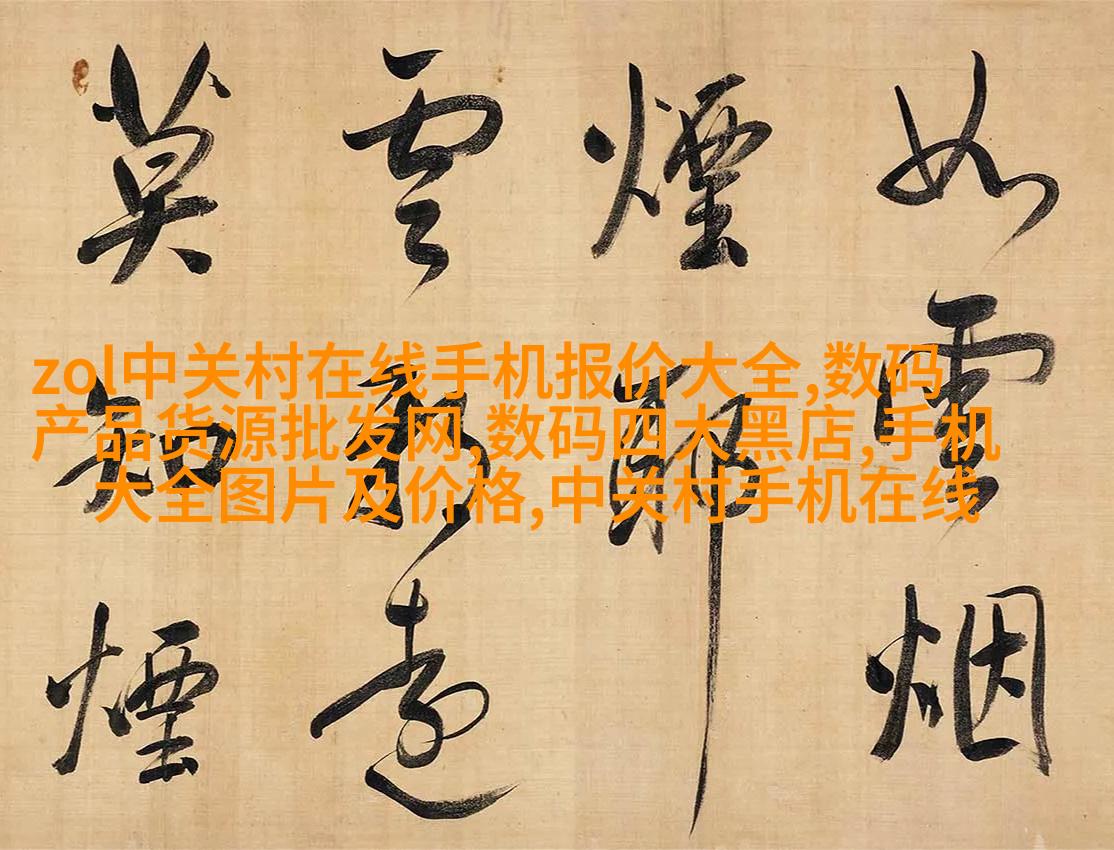 如雲烟
煙耶
雲遠
莫知煙
zol中关村在线手机报价大全,数码
产品货源批发网,数码四大黑店,手机
大全图片及价格,中关村手机在线